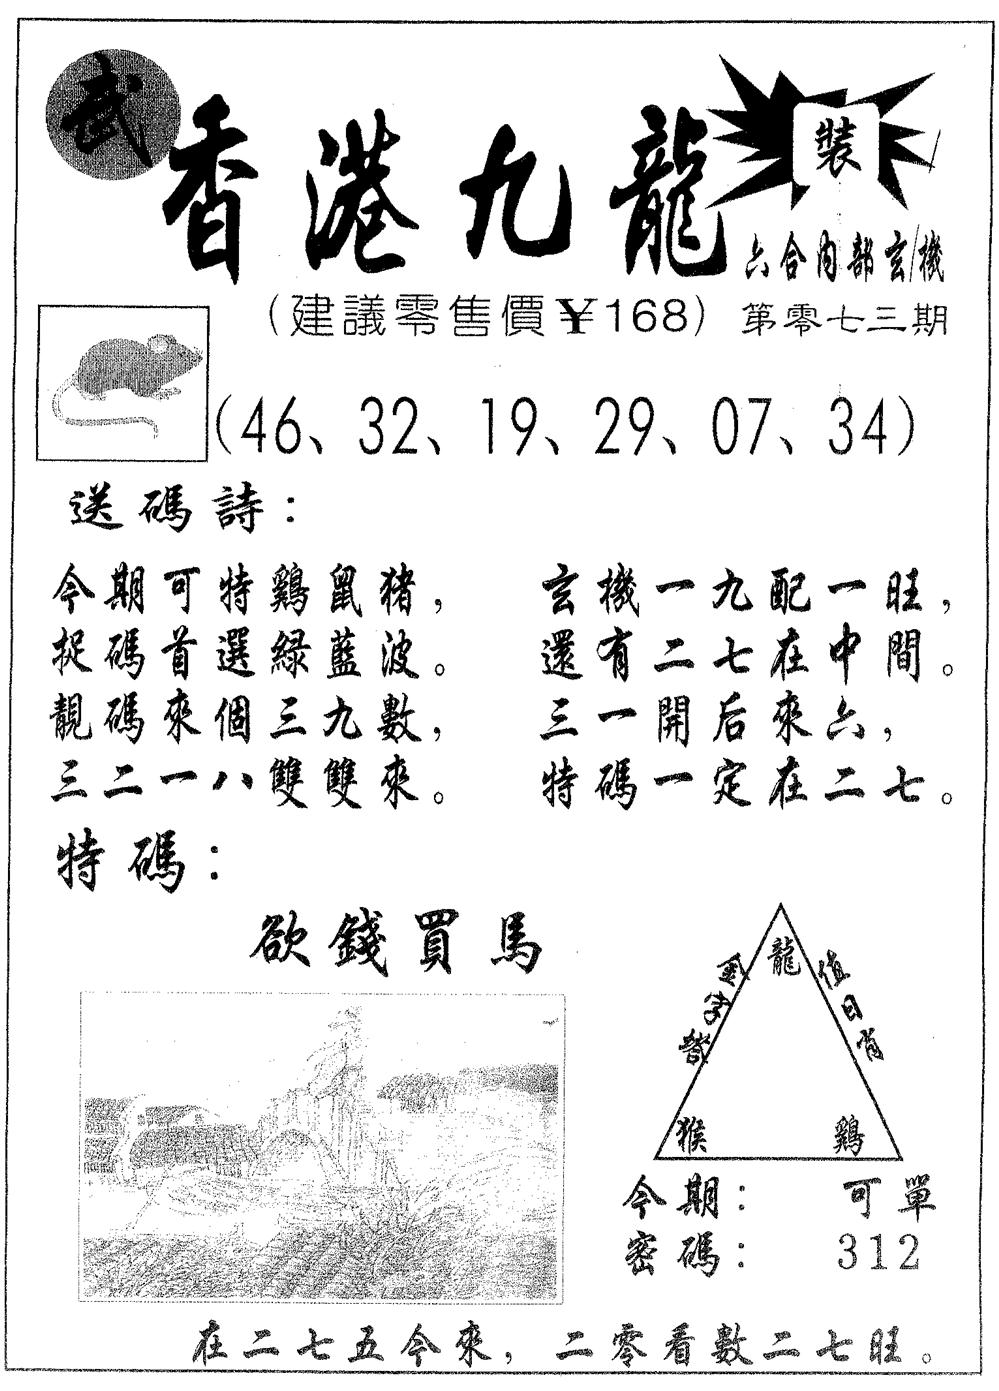 武
香港九龍
裝
六合內部玄機
(建議零售價¥168)
第零七三期
(46、32、19、29、07、34)
送碼詩：
今期可特鷄鼠猪，
捉碼首選緑藍波。
靚碼來個三九數，
三二一八雙雙來。
玄機一九配一旺，
還有二七在中間。
三一開后來六，
特碼一定在二七。
特碼：
欲錢買馬
金字塔
值日肖
龍
猴
鷄
今期： 可單
密碼： 312
在二七五今來，二零看數二七旺。